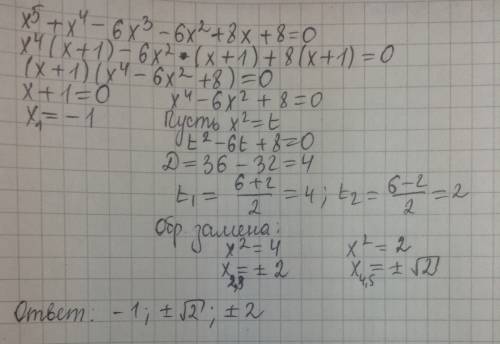 x⁵ + x⁴ − 6x³ − 6x² + 8x + 8 = 0
x⁴(x+1) − 6x² · (x+1) + 8(x+1) = 0
(x+1)(x⁴ − 6x² + 8) = 0
x + 1 = 0 x⁴ − 6x² + 8 = 0
x₁ = −1 Пусть x² = t
t² − 6t + 8 = 0
D = 36 − 32 = 4
t₁ = (6+2)/2 = 4 ; t₂ = (6−2)/2 = 2
Обр. замена:
x² = 4 x² = 2
x₂,₃ = ± 2 x₄,₅ = ± √2
Ответ: −1 ; ± √2 ; ± 2